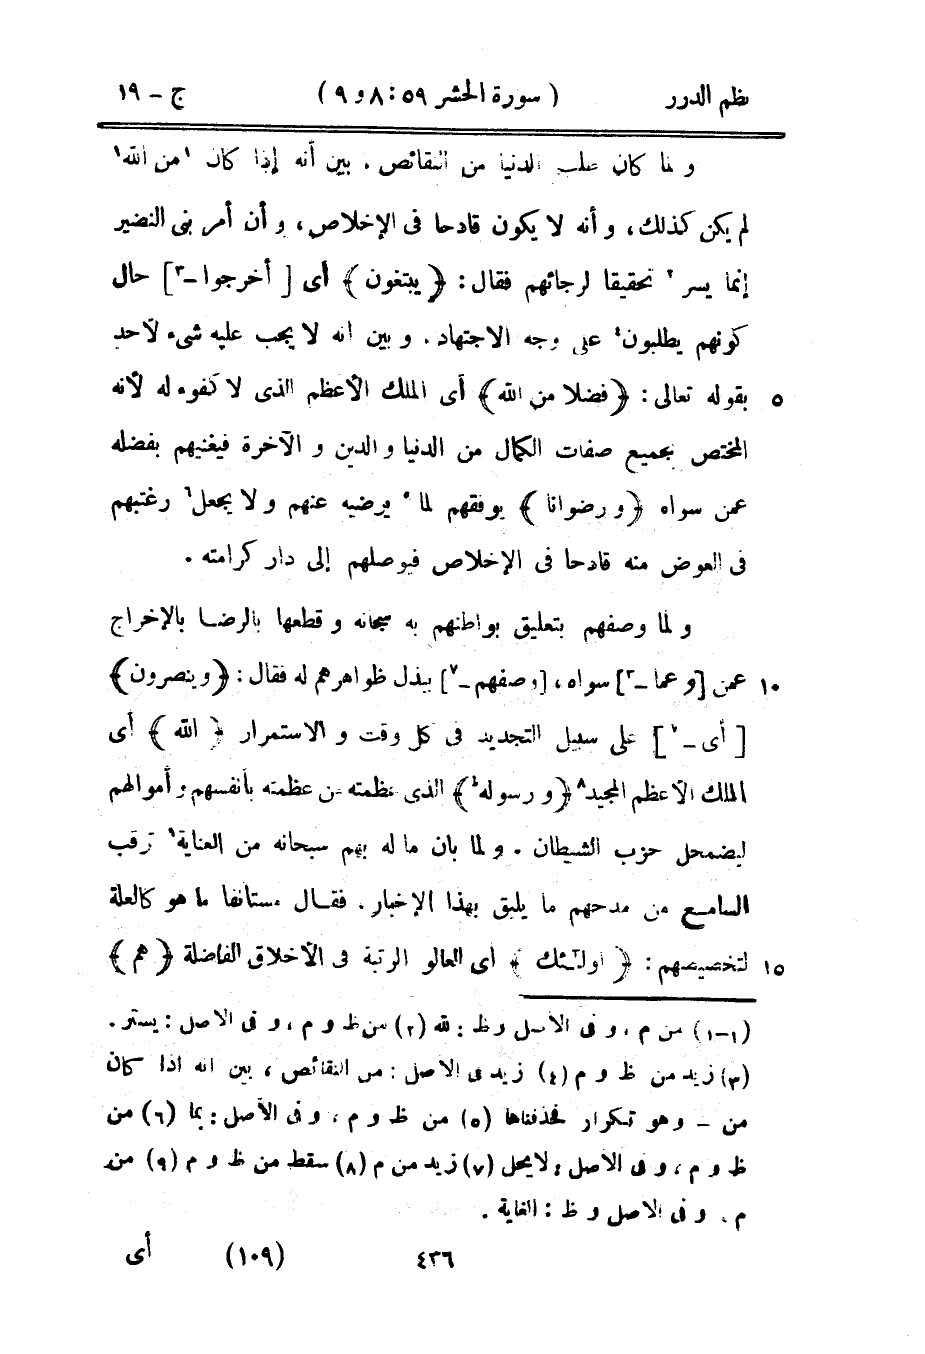 نظم الدرر ( سورة الحشر ٥٩: ٨ و ٩ ) ج – ١٩
و لما كان طلب الدنيا من النقائص . بين أنه إذا كان ١من الله١
لم يكن كذلك ، و أنه لا يكون قادحا فى الإخلاص ، و أن أمر بنى النضير
إنما يسر٢ تحقيقا لرجائهم فقال : ﴿ يبتغون ﴾ أى [ أخرجوا –٣] حال
كونهم يطلبون٤ على وجه الاجتهاد . و بين انه لا يجب عليه شىء لأحد
٥ بقوله تعالى : ﴿ فضلا من الله ﴾ أى الملك الأعظم الذى لا كفوء له لأنه
المختص بجميع صفات الكمال من الدنيا و الدين و الآخرة فيغنيهم بفضله
عمن سواه ﴿ و رضوانا ﴾ يوفقهم لما٥ يرضيه عنهم و لا يجعل٦ رغبتهم
فى العوض منه قادحا فى الإخلاص فيوصلهم إلى دار كرامته .
و لما وصفهم بتعليق بواطنهم به سبحانه و قطعها بالرضا بالإخراج
١٠ عمن [و عما –٣] سواه ، [وصفهم –٧] ببذل ظواهرهم له فقال : ﴿ و ينصرون ﴾
[ أى – ] على سبيل التجديد فى كل وقت و الاستمرار ﴿ الله ﴾ أى
الملك الأعظم المجيد٨ ﴿ و رسوله ﴾ الذى عظمته من عظمته بأنفسهم و أموالهم
ليضمحل حزب الشيطان . و لما بان ما له بهم سبحانه من العناية٩ ترقب
السامع من مدحهم ما يليق بهذا الإخبار . فقال مستانفا ما هو كالعلة
١٥ لتخصيصهم : ﴿ اولٰٓئك ﴾ أى العالو الرتبة فى الأخلاق الفاضلة ﴿ هم ﴾
(١–١) من م ، و فى الأصل و ظ : لله (٢) من ظ و م ، و فى الاصل : يستر .
(٣) زيد من ظ و م (٤) زيد فى الاصل : من النقائص ، بين انه اذا كان
من – و هو تكرار فحذفناها (٥) من ظ و م ، و فى الأصل : بما (٦) من
ظ و م ، و فى الاصل : لا يحل (٧) زيد من م (٨) سقط من ظ و م (٩) من
م . و فى الاصل و ظ : الغاية .
٤٣٦ (١٠٩) أى